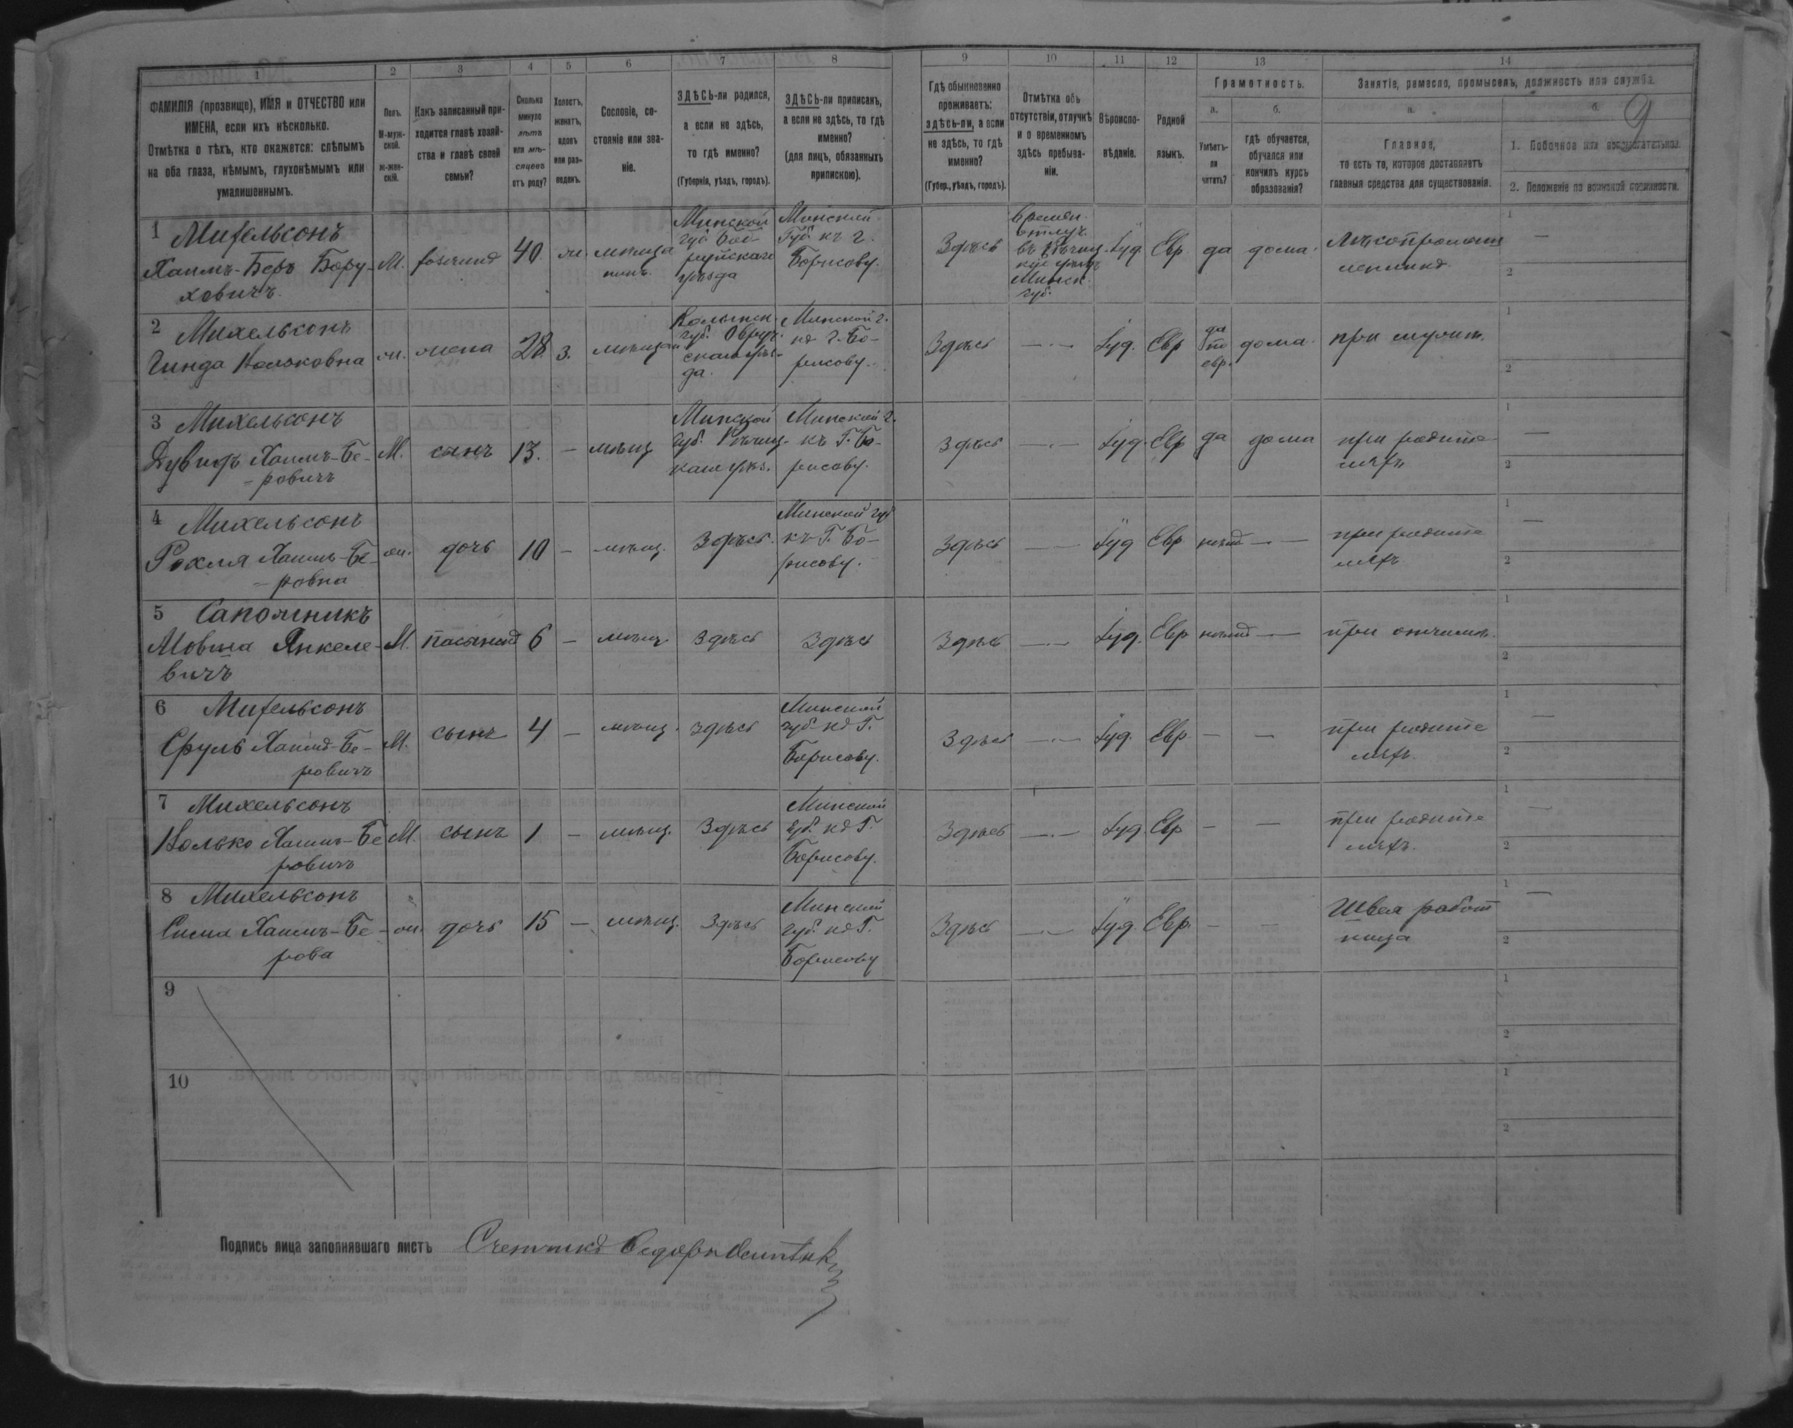 1 2 3 4 5 6 7 8 9 10 11 12 13 14
ФАМИЛІЯ (прозвище), ИМЯ и ОТЧЕСТВО или
ИМЕНА, если ихъ нѣсколько.
Отмѣтка о тѣхъ, кто окажется: слѣпымъ
на оба глаза, нѣмымъ, глухонѣмымъ или
умалишеннымъ.
Полъ.
М-муж-
ской.
ж-жен-
скій.
Какъ записанный при-
ходится главѣ хозяй-
ства и главѣ своей
семьи?
Сколько
минуло
лѣтъ
или мѣ-
сяцевъ
отъ роду?
Холостъ,
женатъ,
вдовъ
или раз-
веденъ.
Сословіе, со-
стояніе или зва-
ніе.
ЗДѢСЬ-ли родился,
а если не здѣсь,
то гдѣ именно?
(Губернія, уѣздъ, городъ).
ЗДѢСЬ-ли приписанъ,
а если не здѣсь, то гдѣ
именно?
(для лицъ, обязанныхъ
припискою).
Гдѣ обыкновенно
проживаетъ:
здѣсь-ли, а если
не здѣсь, то гдѣ
именно?
(Губер., уѣздъ, городъ).
Отмѣтка объ
отсутствіи, отлучкѣ
и о временномъ
здѣсь пребыва-
ніи.
Вѣроиспо-
вѣданіе.
Родной
языкъ.
Грамотность.
а.
Умѣетъ-
ли
читать?
б.
гдѣ обучается,
обучался или
кончилъ курсъ
образованія?
Занятіе, ремесло, промыселъ, должность или служба.
а.
Главное,
то есть то, которое доставляетъ
главныя средства для существованія.
б.
9
1. Побочное или вспомогательное.
2. Положеніе по воинской повинности.
1 Михельсонъ
Хаимъ-Беръ Бору-
ховичъ.
М.
40
Минской
губ. Боб-
руйскаго
уѣзда
Минской
Губ. къ г.
Борисову.
Здѣсь
Времен.
Отлуч.
Минск.
губ.
Іуд.
Евр
да
дома.
1 —
2
2 Михельсонъ
Гинда Вольковна
ж.
жена
28
з.
Волынск.
губ. Овруч-
скаго уѣз-
да.
Минской г.
къ г. Бо-
рисову.
Здѣсь
—
Іуд.
Евр
да
по
евр.
дома.
при мужѣ.
1
2
3 Михельсонъ
Дувидъ Хаимъ-Бе-
-ровичъ
М.
сынъ
13.
—
мѣщ
Минской
губ. Рѣчиц-
каго уѣз.
Минской г.
къ Г. Бо-
рисову.
Здѣсь
—
Іуд.
Евр
да
дома
при родите-
ляхъ
1 —
2
4 Михельсонъ
Рохля Хаимъ-Бе-
-ровна
ж.
дочь
10
—
мѣщ.
Здѣсь.
Минской губ
къ Г. Бо-
рисову.
Здѣсь
—
Іуд
Евр
—
при родите
ляхъ
1 —
2
5 Сапожникъ
Мовша Янкеле-
вичъ
М.
пасынокъ
6
—
мѣщ.
Здѣсь
Здѣсь
Здѣсь
—
Іуд.
Евр
—
при отчимѣ.
1
2
6 Михельсонъ
Сруль Хаимъ-Бе-
ровичъ
М.
сынъ
4
—
мѣщ.
здѣсь
Минской
губ. къ Г.
Борисову.
Здѣсь
—
Іуд.
Евр
—
—
при родите
ляхъ.
1 —
2
7 Михельсонъ
Волько Хаимъ-Бе
ровичъ
М.
сынъ
1
—
мѣщ.
Здѣсь
Минской
губ. къ Г.
Борисову.
Здѣсь
—
Іуд
Евр
—
—
при родите
ляхъ.
1 —
2
8 Михельсонъ
Сима Хаимъ-Бе-
рова
ж.
дочь
15
—
мѣщ.
Здѣсь
Минской
губ. къ Г.
Борисову
Здѣсь
—
Іуд.
Евр.
—
—
Швея работ
ница
1 —
2
9
1
2
10
1
2
Подпись лица заполнявшаго листъ Счетчикъ